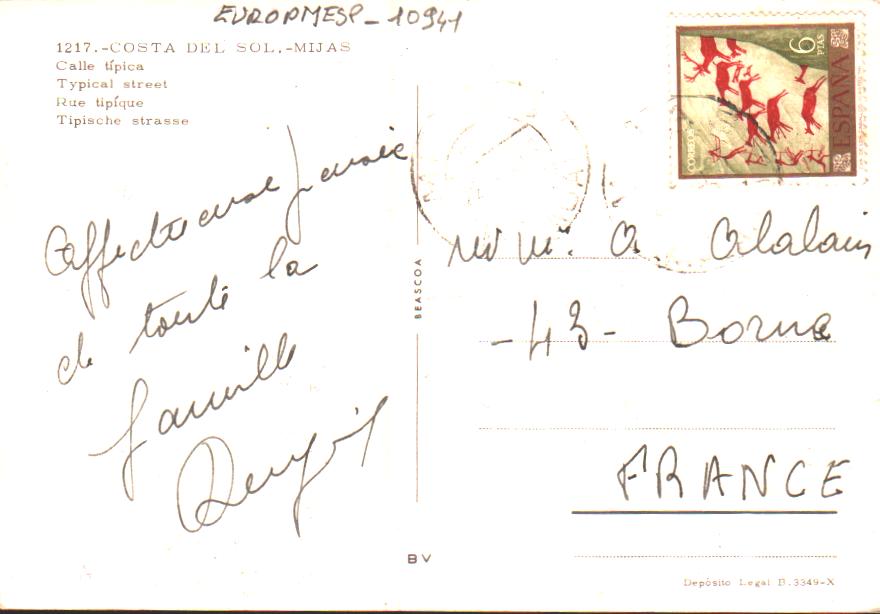 EUROPMESP-10941
1217.-COSTA DEL SOL.-MIJAS
Calle típica
Typical street
Rue tipíque
Tipische strasse
6 PTAS
CORREOS
ESPAÑA
Affectueuse pensée
de toute la
famille
BEASCOA
A Alalain
-43- Borne
FRANCE
BV
Depósito Legal B.3349-X